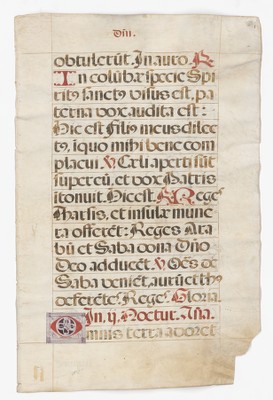 Dñi.
obtulerūt. In auro. R
In colūbæ specie Spi
ritꝰ sanctꝰ visus est, pa
terna vox audita est:
Hic est Filiꝰ meus dilec
tꝰ, i quo mihi bene com
placui. V Cæli aperti sūt
super eū, et vox Patris
itonuit. Hic est. R Reges
Tharsis, et insulæ mune
ra offerēt: Reges Ara
bū et Saba dona Dño
Deo adducēt. V Oēs de
Saba veniēt, aurū et thꝰ
deferētes. Reges. Gloria.
In. ij. Noctur. Aña.
Omnis terra adoret